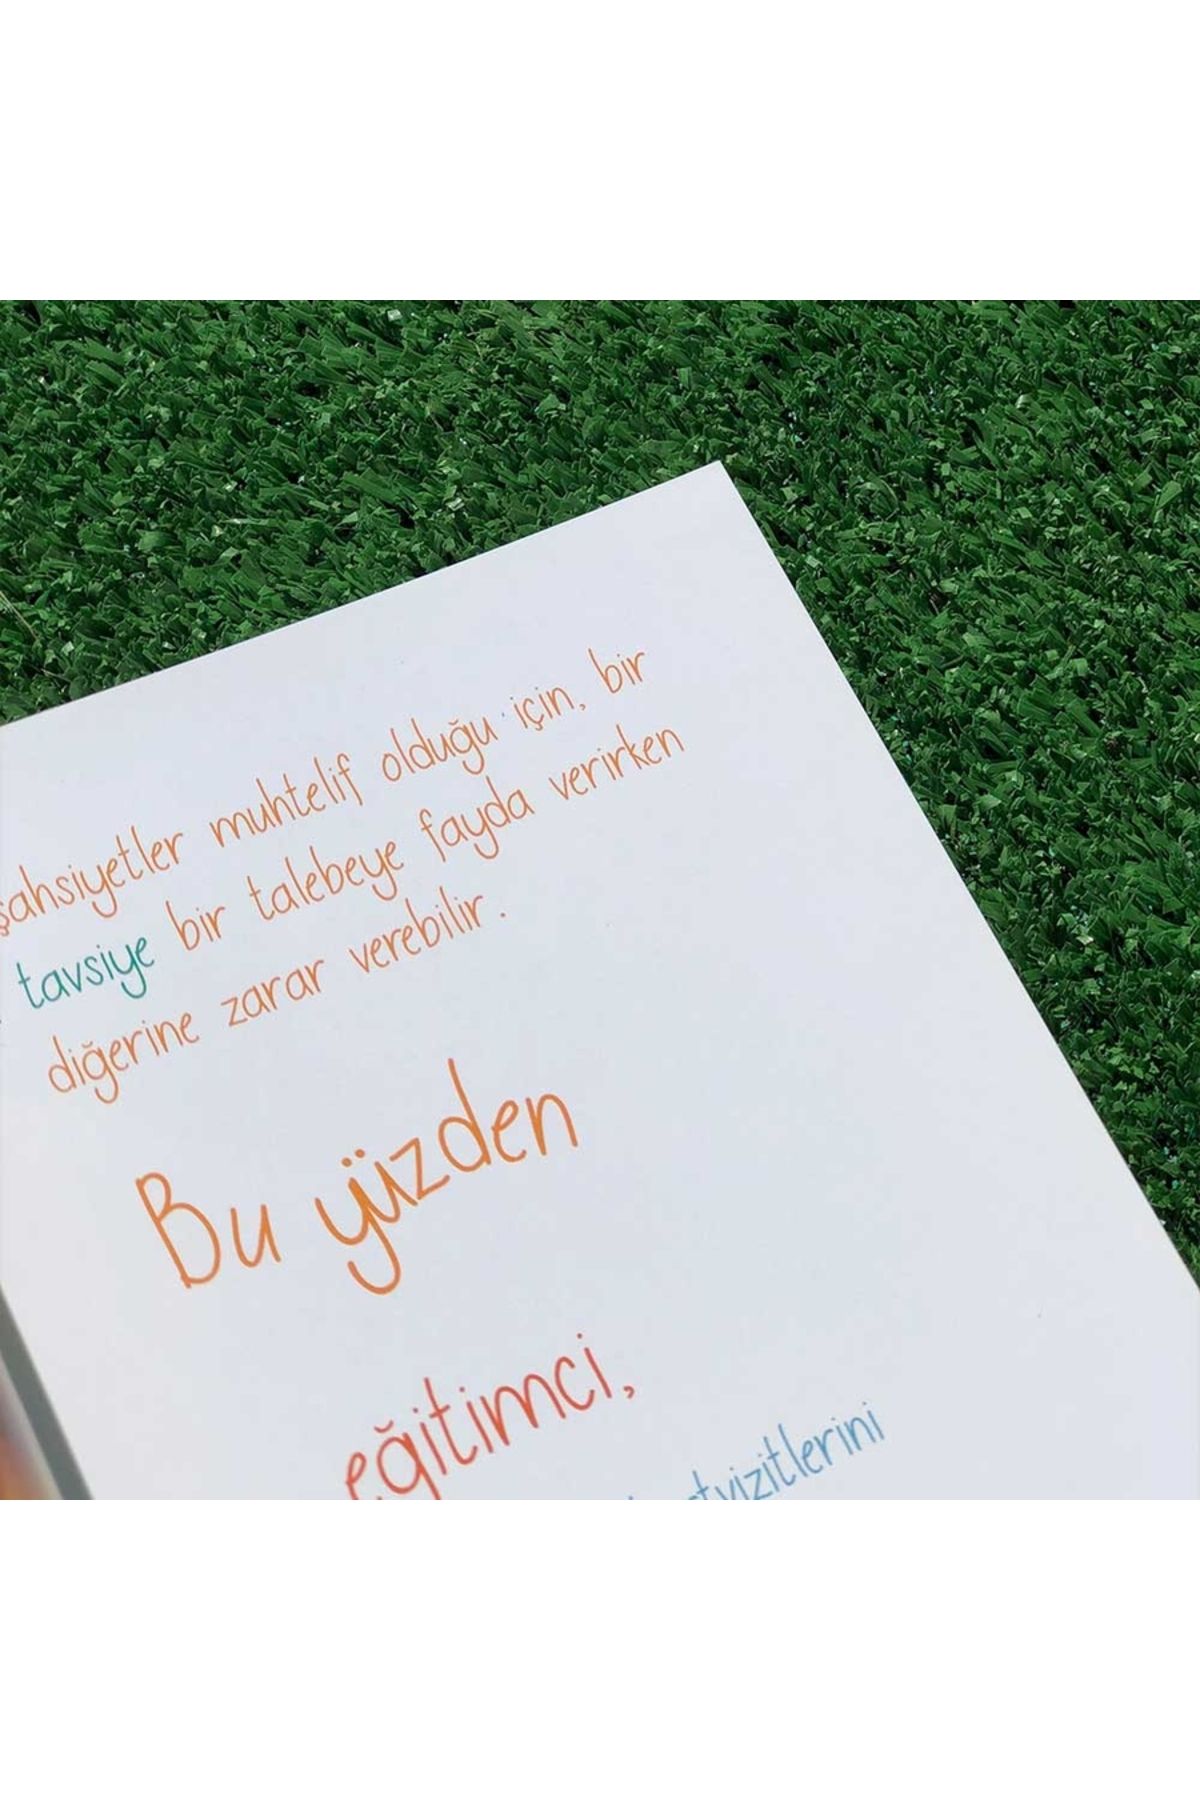 şahsiyetler muhtelif olduğu için, bir
tavsiye bir talebeye fayda verirken
diğerine zarar verebilir.
Bu yüzden
eğitimci,